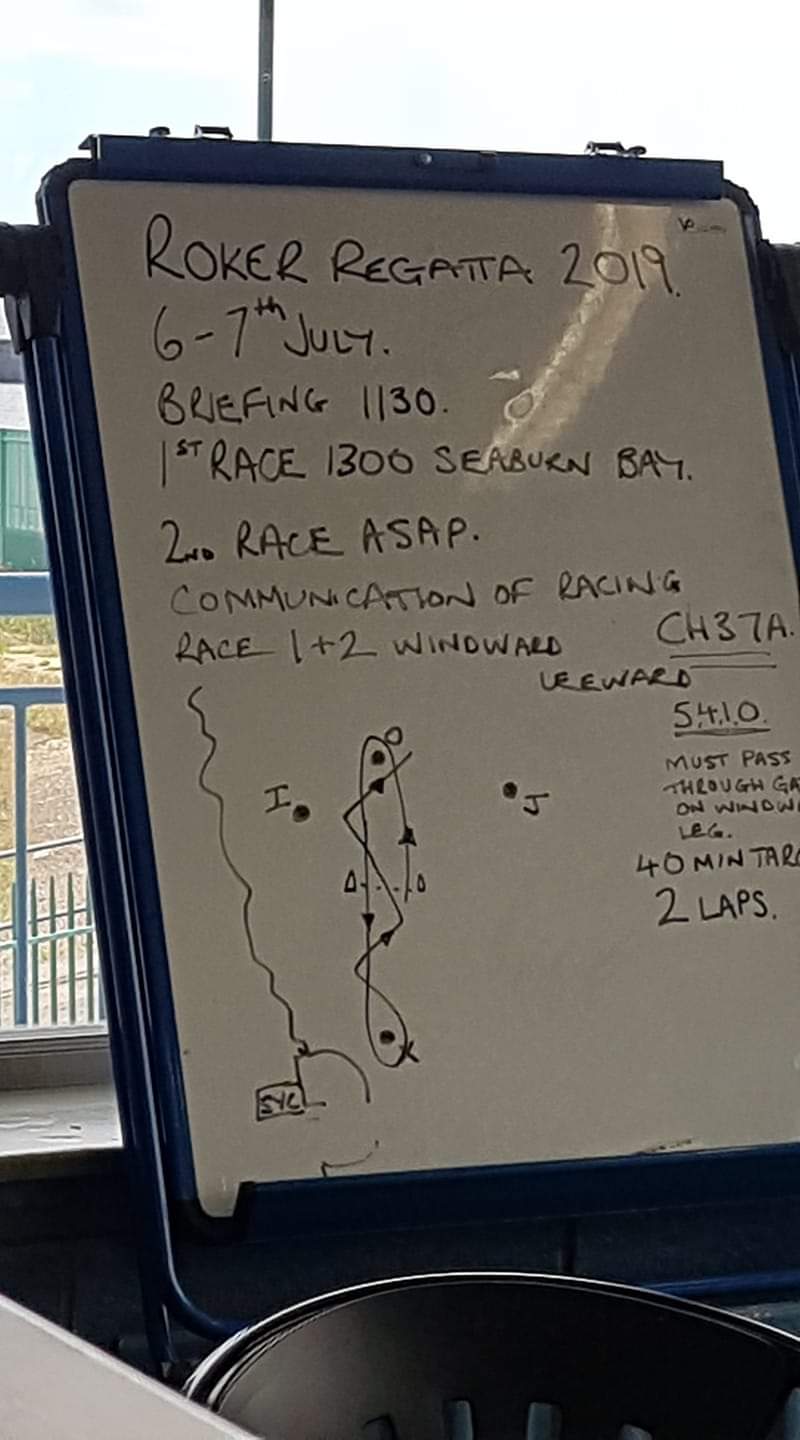 ROKER REGATTA 2019.
6-7th JULY.
BRIEFING 1130.
1ST RACE 1300 SEABURN BAY.
2ND RACE ASAP.
COMMUNICATION OF RACING
CH37A.
RACE 1+2 WINDWARD
LEEWARD
5.4.1.0.
MUST PASS
THROUGH GA
ON WINDW
LEG.
40 MIN TARG
2 LAPS.
O
I
J
K
SYC